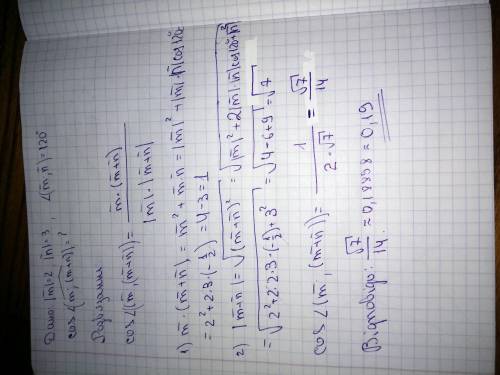 Дано: |m̅|=2 |n̅|=3, ∠(m̅,n̅)=120°
cos∠(m̅,(m̅+n̅))=?
Розв'язання
cos∠(m̅,(m̅+n̅))= m̅·(m̅+n̅) / |m̅|·|m̅+n̅|
1) m̅·(m̅+n̅)= m̅²+m̅·n̅=|m̅|²+|m̅|·|n̅|cos120°=
=2²+2·3·(-1/2)=4-3=1
2) |m̅+n̅|=√(m̅+n̅)²=√|m̅|²+2|m̅|·|n̅|cos120+|n̅|²
=√2²+2·2·3·(-1/2)+3²=√4-6+9=√7
cos∠(m̅,(m̅+n̅))= 1/2·√7 = √7/14
Відповідь: √7/14 ≈0,18898≈0,19